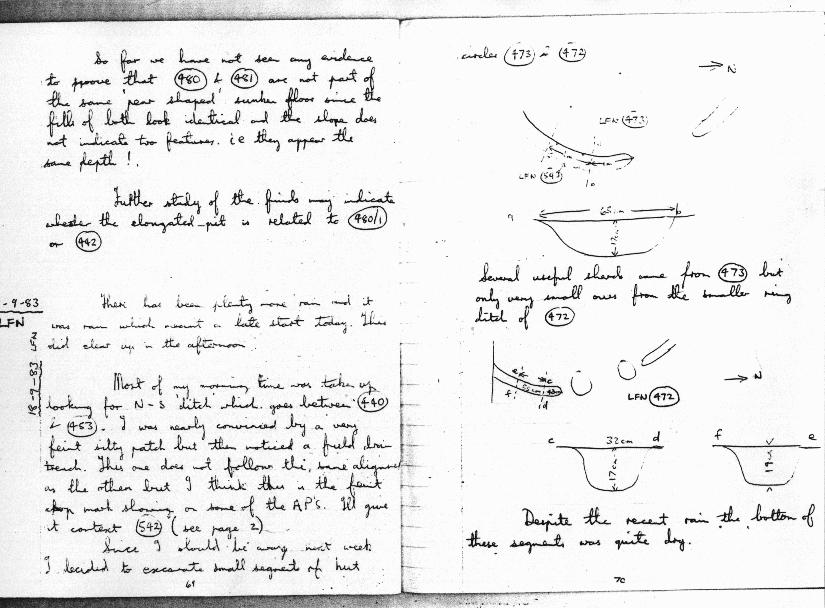 So far we have not seen any evidence
to proove that 480 & 481 are not part of
the same 'pear shaped' sunken floor since the
fills of both look identical and the slope does
not indicate two features. i.e they appear the
same depth!.
Further study of the finds may indicate
whether the elongated pit is related to 480/1
or 442
-9-83
LFN
There has been plenty more rain and it
was rain which meant a late start today. This
did clear up in the afternoon
18-9-83 LFN
Most of my morning time was taken up
looking for N-S ditch which goes between 440
& 453. I was nearly convinced by a very
feint silty patch but then noticed a field drain
trench. This one does not follow the same alignm
as the others but I think this is the feint
crop mark showing on some of the AP's. I'll give
it context 542 (see page 2)
Since I should be away next week
I decided to excavate small segments of hut
69
circles 473 & 472
N
LFN 473
LFN 541
a 65cm b
17cm
Several useful sherds came from 473 but
only very small ones from the smaller ring
ditch of 472
e c
f d
LFN 472
N
c 32cm d
17cm
f e
19cm
Despite the recent rain the bottom of
these segments was quite dry.
70